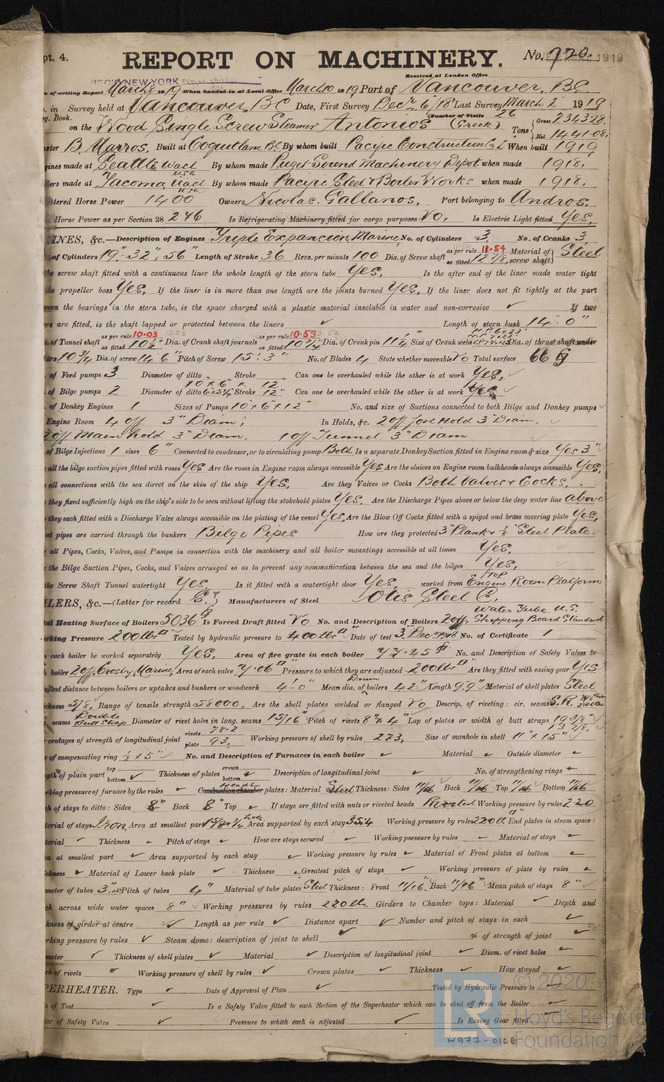 pt. 4.
REPORT ON MACHINERY. No. 770.
REC'D NEW YORK
Received at London Office
of writing Report March 8 1919 When handed in at Local Office March 10 1919 Port of Vancouver, B.C.
in Survey held at Vancouver B.C. Date, First Survey Dec. 6, 18 Last Survey March 2 1919
Book. (Number of Visits 26
on the Wood Single Screw Steamer Antonios (Greek) Tons Gross 2343.78 Net 1441.08
B. Mavros. Built at Coquitlam B.C. By whom built Pacific Construction Co. When built 1919
ines made at Seattle Wash By whom made Puget Sound Machinery Depot when made 1918.
ers made at Tacoma Wash U.S.A. By whom made Pacific Steel & Boiler Works when made 1918.
tered Horse Power 1400 Owner Nicolas Gallanos. Port belonging to Andros.
Horse Power as per Section 28 246 Is Refrigerating Machinery fitted for cargo purposes No. Is Electric Light fitted Yes.
INES, &c.—Description of Engines Triple Expansion Marine No. of Cylinders 3 No. of Cranks 3
of Cylinders 19" 32" 56" Length of Stroke 36 Revs. per minute 100 Dia. of Screw shaft as per rule as fitted 12 7/8 Material of screw shaft Steel
the screw shaft fitted with a continuous liner the whole length of the stern tube Yes. Is the after end of the liner made water tight
the propeller boss Yes. If the liner is in more than one length are the joints burned Yes. If the liner does not fit tightly at the part
een the bearings in the stern tube, is the space charged with a plastic material insoluble in water and non-corrosive ✓ If two
rs are fitted, is the shaft lapped or protected between the liners ✓ Length of stern bush 4'-0"
of Tunnel shaft as per rule 10.03 as fitted Dia. of Crank shaft journals as per rule 10.53 as fitted 10 3/4 Dia. of Crank pin 11 1/4 Size of Crank webs Dia. of thrust shaft under
10 3/4 Dia. of screw 14'6" Pitch of Screw 15'3" No. of Blades 4 State whether moveable No Total surface 66
of Feed pumps 3 Diameter of ditto Stroke Can one be overhauled while the other is at work Yes.
of Bilge pumps 2 Diameter of ditto Stroke 12" Can one be overhauled while the other is at work Yes
of Donkey Engines 1 Sizes of Pumps 10 x 6 x 12 No. and size of Suctions connected to both Bilge and Donkey pumps
Engine Room 4 off 3" Diam; In Holds, &c. 2 off fore Hold 3" Diam.
2 off Main Hold 3" Diam. 1 off Tunnel 3" Diam
of Bilge Injections 1 sizes 6" Connected to condenser, or to circulating pump Both Is a separate Donkey Suction fitted in Engine room & size Yes 3"
all the bilge suction pipes fitted with roses Yes Are the roses in Engine room always accessible Yes Are the sluices on Engine room bulkheads always accessible Yes
all connections with the sea direct on the skin of the ship Yes. Are they Valves or Cocks Both Valves & Cocks.
they fixed sufficiently high on the ship's side to be seen without lifting the stokehold plates Yes. Are the Discharge Pipes above or below the deep water line above
they each fitted with a Discharge Valve always accessible on the plating of the vessel Yes. Are the Blow Off Cocks fitted with a spigot and brass covering plate Yes.
at pipes are carried through the bunkers Bilge Pipes How are they protected 3" Plank & 1/2" Steel Plate.
all Pipes, Cocks, Valves, and Pumps in connection with the machinery and all boiler mountings accessible at all times Yes.
the Bilge Suction Pipes, Cocks, and Valves arranged so as to prevent any communication between the sea and the bilges Yes.
the Screw Shaft Tunnel watertight Yes Is it fitted with a watertight door Yes, worked from Top Engine Room Platform
ILERS, &c.—(Letter for record S.) Manufacturers of Steel Otis Steel Co.
al Heating Surface of Boilers 5036 Is Forced Draft fitted No No. and Description of Boilers 2 off, Water Tube U.S. Shipping Board Standard
rking Pressure 200 lbs Tested by hydraulic pressure to 400 lbs Date of test No. of Certificate 1
each boiler be worked separately Yes. Area of fire grate in each boiler No. and Description of Safety Valves to
boiler 2 off Crosby Marine, Area of each valve 7.06 Pressure to which they are adjusted 200 lbs Are they fitted with easing gear Yes
llest distance between boilers or uptakes and bunkers or woodwork 4'-0" Mean dia. of boilers Drum 42" Length 9'9" Material of shell plates Steel
kness 5/8, Range of tensile strength 58000, Are the shell plates welded or flanged No Descrip. of riveting: cir. seams S.R.
seams Double Butt Strap Diameter of rivet holes in long. seams 15/16 Pitch of rivets Lap of plates or width of butt straps
centages of strength of longitudinal joint rivets 78.2 plate 93. Working pressure of shell by rules 273, Size of manhole in shell 11" x 15"
of compensating ring No. and Description of Furnaces in each boiler ✓ Material ✓ Outside diameter ✓
gth of plain part top bottom Thickness of plates crown bottom Description of longitudinal joint No. of strengthening rings
king pressure of furnace by the rules ✓ Combustion chamber plates: Material Steel Thickness: Sides 11/16 Back 11/16 Top 11/16 Bottom 11/16
h of stays to ditto: Sides 8" Back 8" Top If stays are fitted with nuts or riveted heads Riveted Working pressure by rules 220
erial of stays Iron Area at smallest part Area supported by each stay Working pressure by rules 220 lb End plates in steam space:
terial Thickness Pitch of stays How are stays secured Working pressure by rules Material of stays
a at smallest part Area supported by each stay Working pressure by rules Material of Front plates at bottom
kness Material of Lower back plate Thickness Greatest pitch of stays Working pressure of plate by rules
meter of tubes 3" Pitch of tubes 4" Material of tube plates Steel Thickness: Front 11/16", Back 11/16" Mean pitch of stays 8"
h across wide water spaces 8" Working pressures by rules 220 lb Girders to Chamber tops: Material Depth and
kness of girder at centre Length as per rule Distance apart Number and pitch of stays in each
rking pressure by rules Steam dome: description of joint to shell % of strength of joint
meter Thickness of shell plates Material Description of longitudinal joint Diam. of rivet holes
h of rivets Working pressure of shell by rules Crown plates Thickness How stayed
PERHEATER. Type Date of Approval of Plan Tested by Hydraulic Pressure to
of Test Is a Safety Valve fitted to each Section of the Superheater which can be shut off from the Boiler
ter of Safety Valve Pressure to which each is adjusted Is Easing Gear fitted
© 2020
Lloyd's Register
Foundation
W977-0106